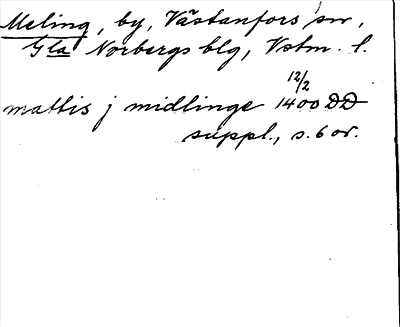 Meling, by, Västanfors sn,
Gla Norbergs blg, Vstm. l.
mattis j midlinge 12/2 1400 DD
suppl., s. 6 or.